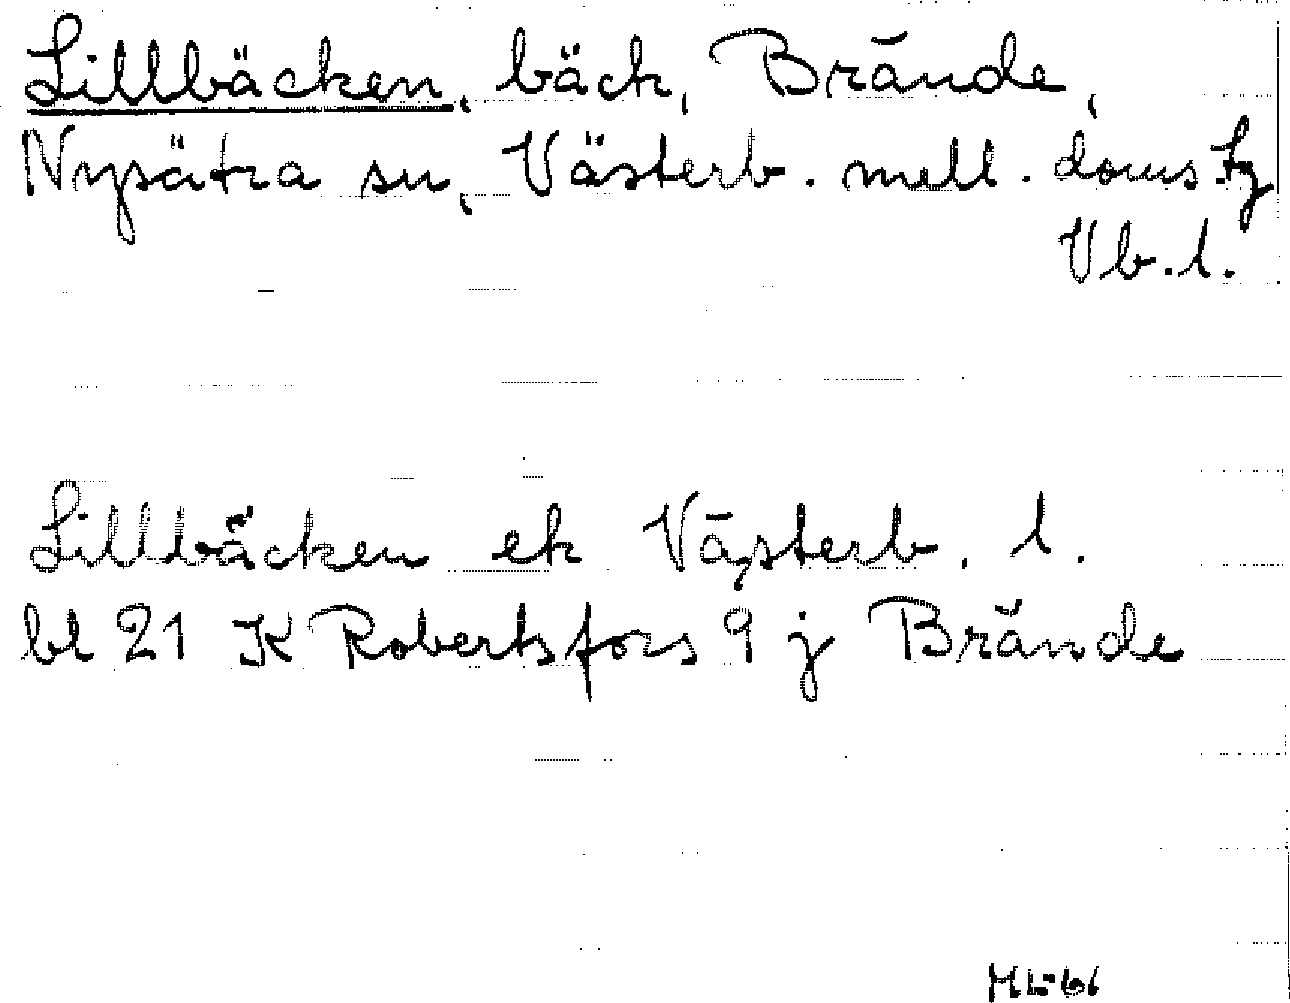 Lillbäcken, bäck, Brände,
Nysätra sn, Västerb. mell. doms. tg
Vb.l.
Lillbäcken ek Västerb. l.
bl 21 K Robertsfors 9 j Brände